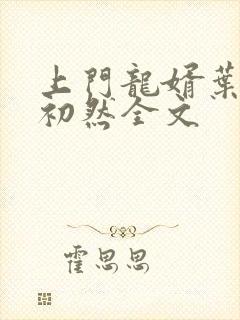 上門龍婿葉
初然全文
霍思思